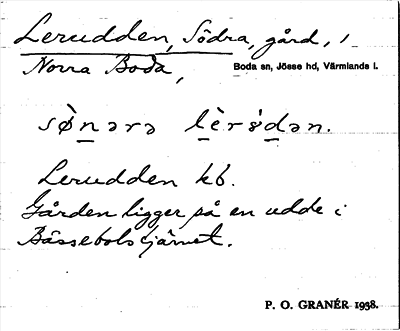 Lerudden, Södra, gård, i
Norra Boda, Boda sn, Jösse hd, Värmlands l.
Lerudden kb.
Gården ligger på en udde i
Bässebolstjärnet.
P. O. GRANÉR 1938.